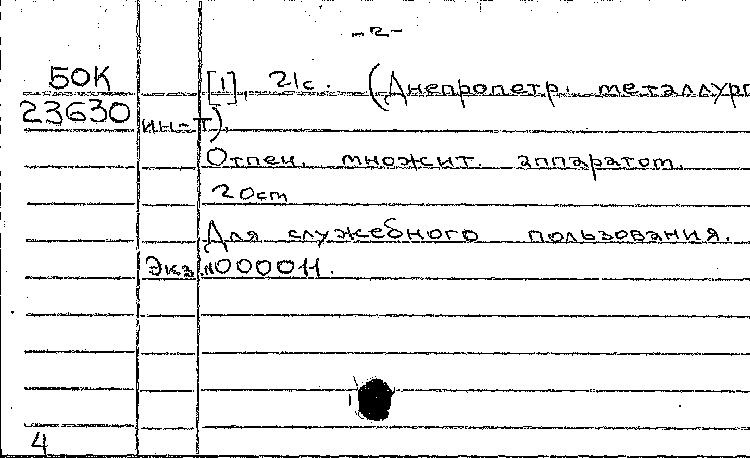 -2-
БОК [1], 21с. (Днепропетр. металлург
23630 ин-т).
Отпеч. множит. аппаратом.
20см
Для служебного пользования.
Экз. №000011.
4